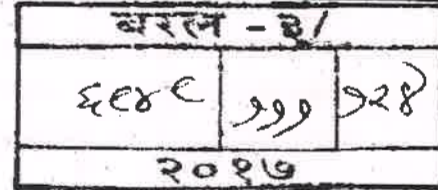 बरल - ३/
६९४९ १११ १२४
२०१७